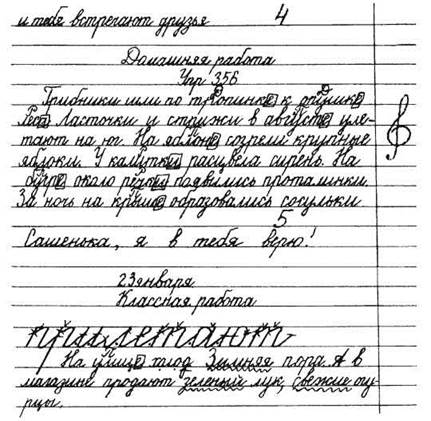 и тебе встречают друзья 4
Домашняя работа
Упр 356
Грибники шли по тропинке к
Ласточки и стрижи в августе уле-
тают на юг. На яблоне созрели крупные
яблоки. У калитки расцвела сирень. На
бугре около речки появились проталинки
За ночь на крыше образовались сосульки
5
Сашенька, я в тебя верю!
23 января
Классная работа
На улице плод Зимняя пора. А в
магазине продают зеленый лук, свежие огу-
рцы.